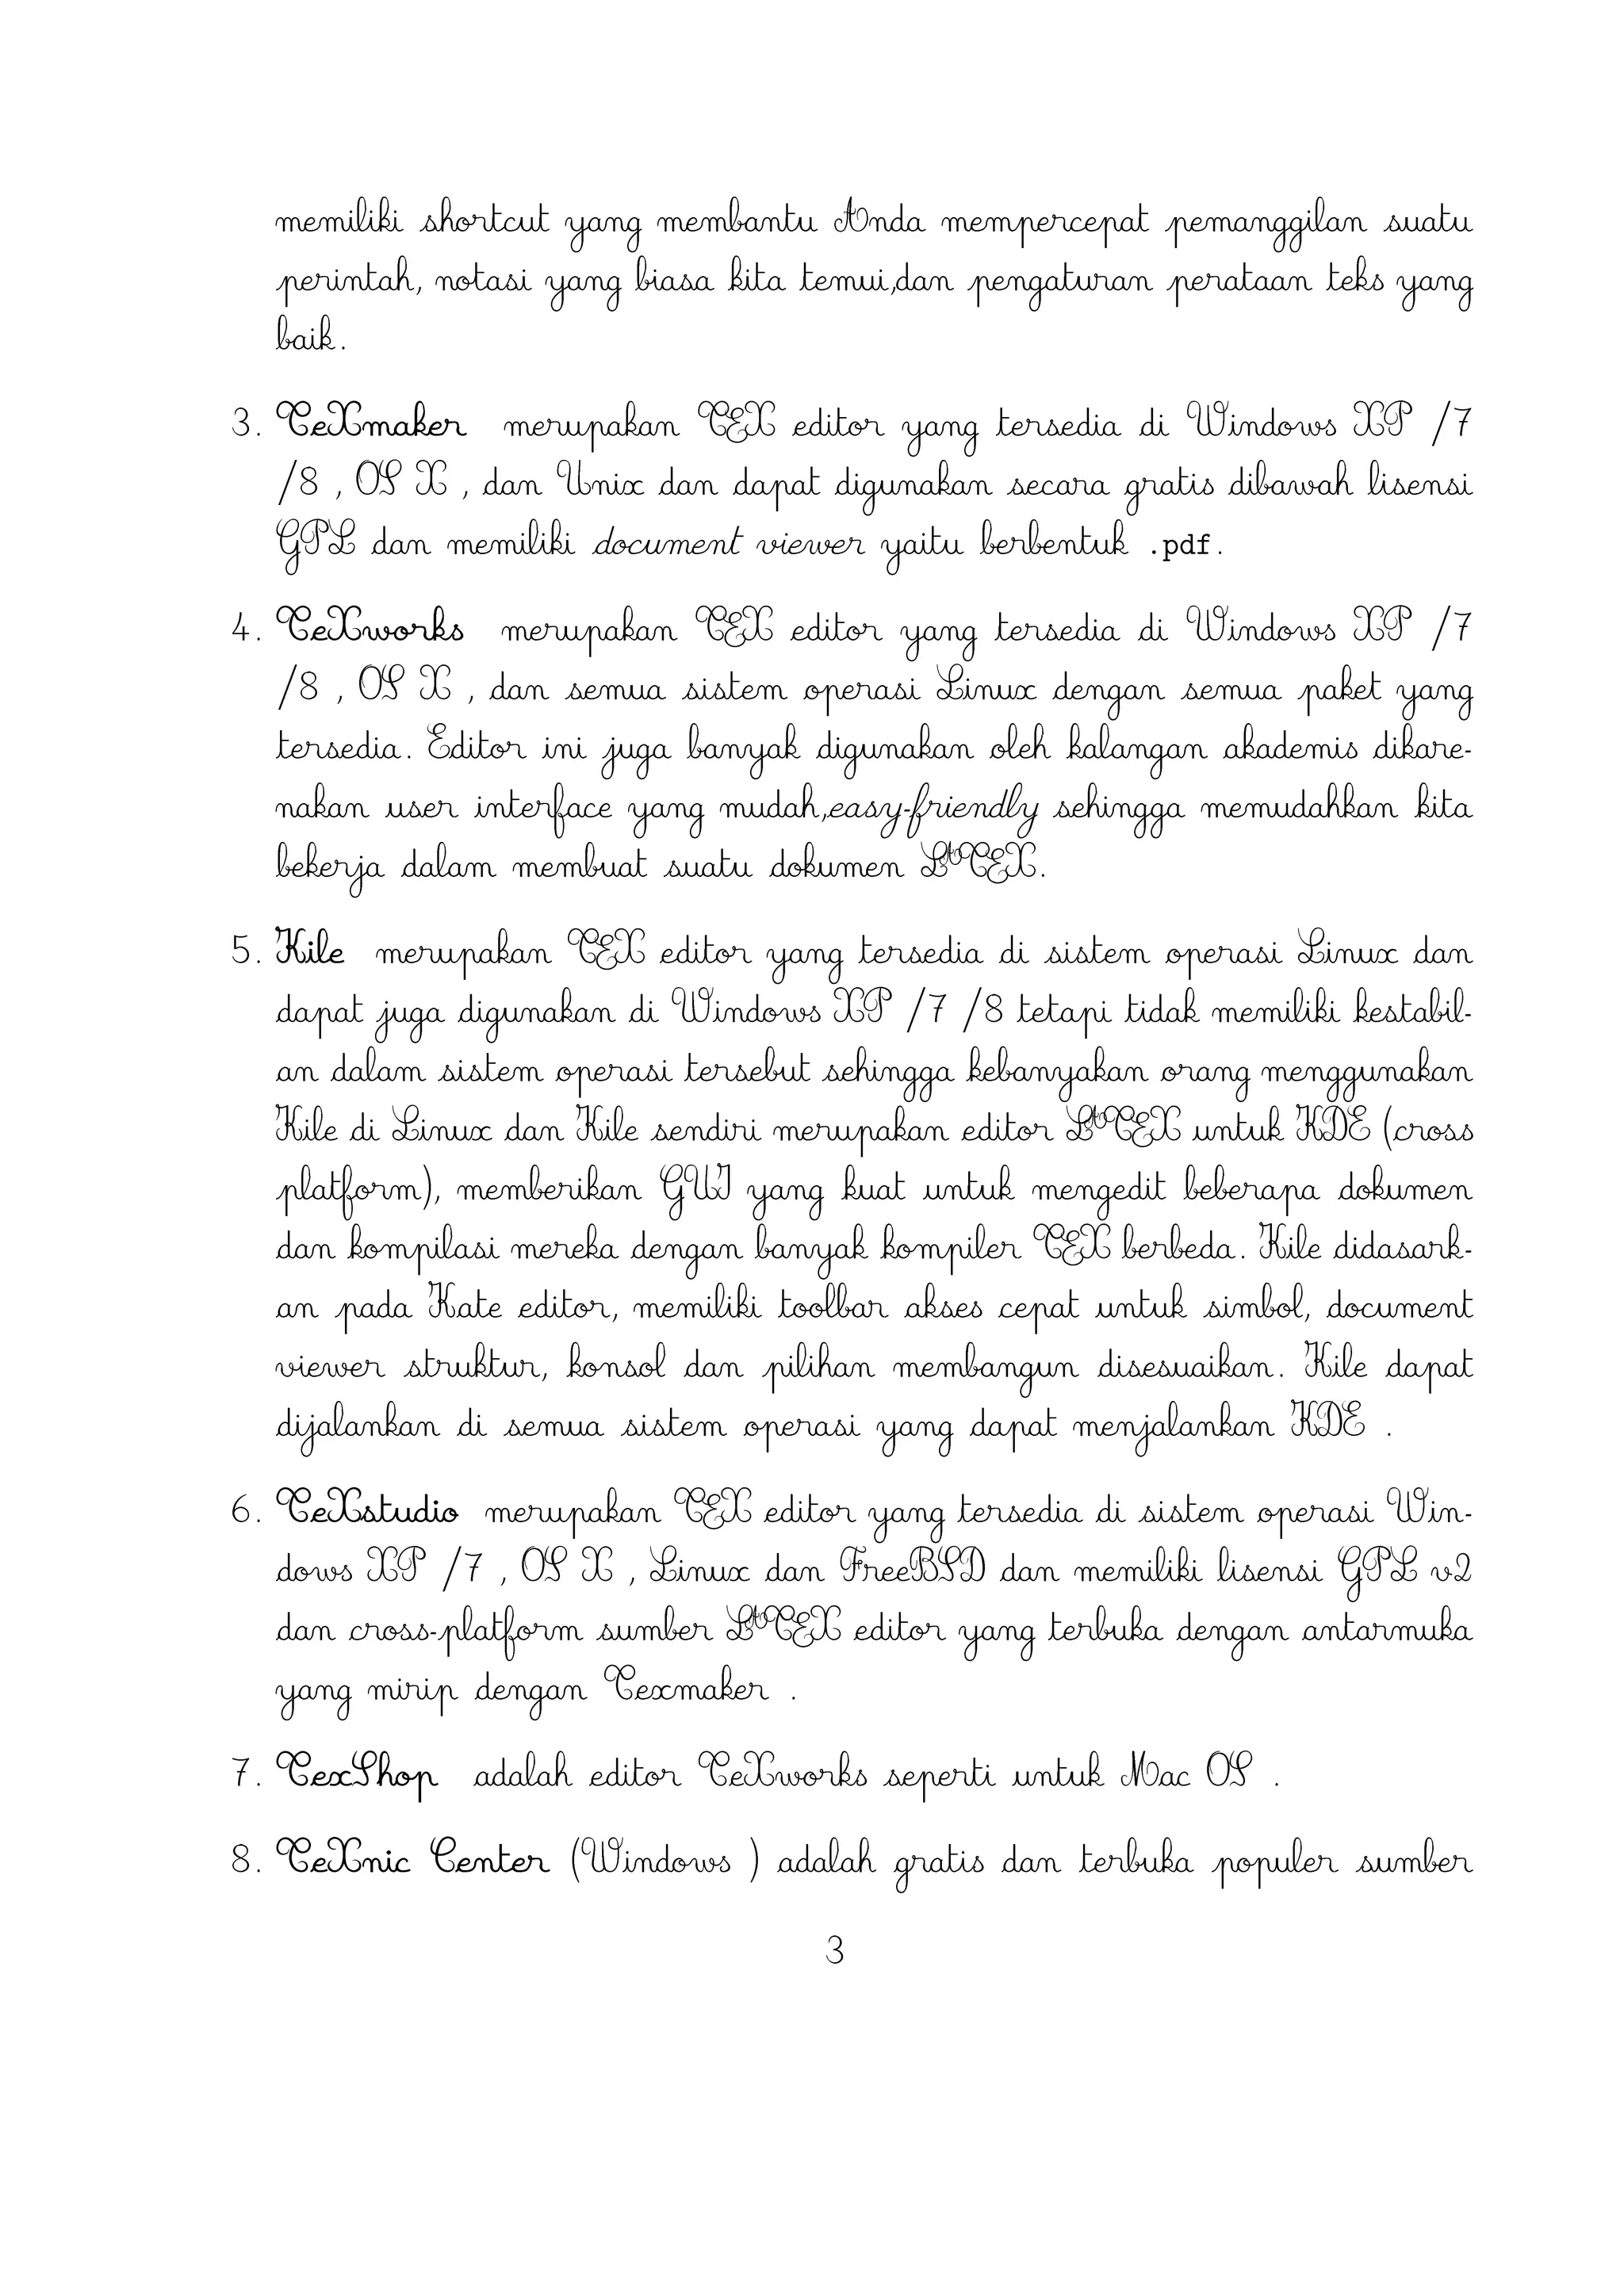 memiliki shortcut yang membantu Anda mempercepat pemanggilan suatu
perintah, notasi yang biasa kita temui,dan pengaturan perataan teks yang
baik.
3. TeXmaker merupakan TEX editor yang tersedia di Windows XP /7
/8 , OS X , dan Unix dan dapat digunakan secara gratis dibawah lisensi
GPL dan memiliki document viewer yaitu berbentuk .pdf.
4. TeXworks merupakan TEX editor yang tersedia di Windows XP /7
/8 , OS X , dan semua sistem operasi Linux dengan semua paket yang
tersedia. Editor ini juga banyak digunakan oleh kalangan akademis dikare-
nakan user interface yang mudah,easy-friendly sehingga memudahkan kita
bekerja dalam membuat suatu dokumen LATEX.
5. Kile merupakan TEX editor yang tersedia di sistem operasi Linux dan
dapat juga digunakan di Windows XP /7 /8 tetapi tidak memiliki kestabil-
an dalam sistem operasi tersebut sehingga kebanyakan orang menggunakan
Kile di Linux dan Kile sendiri merupakan editor LATEX untuk KDE (cross
platform), memberikan GUI yang kuat untuk mengedit beberapa dokumen
dan kompilasi mereka dengan banyak kompiler TEX berbeda. Kile didasark-
an pada Kate editor, memiliki toolbar akses cepat untuk simbol, document
viewer struktur, konsol dan pilihan membangun disesuaikan. Kile dapat
dijalankan di semua sistem operasi yang dapat menjalankan KDE .
6. TeXstudio merupakan TEX editor yang tersedia di sistem operasi Win-
dows XP /7 , OS X , Linux dan FreeBSD dan memiliki lisensi GPL v2
dan cross-platform sumber LATEX editor yang terbuka dengan antarmuka
yang mirip dengan Texmaker .
7. TexShop adalah editor TeXworks seperti untuk Mac OS .
8. TeXnic Center (Windows ) adalah gratis dan terbuka populer sumber
3